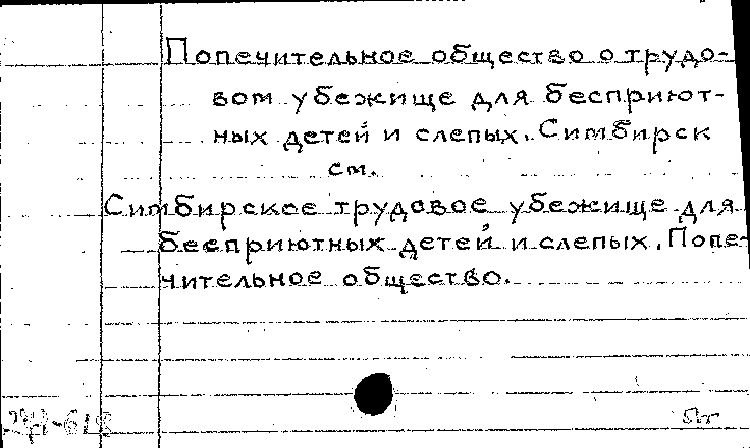 Попечительное общество о трудо-
вом убежище для бесприют-
ных детей и слепых. Симбирск
см.
Симбирское трудовое убежище для
бесприютных детей и слепых. Попе-
чительное общество.